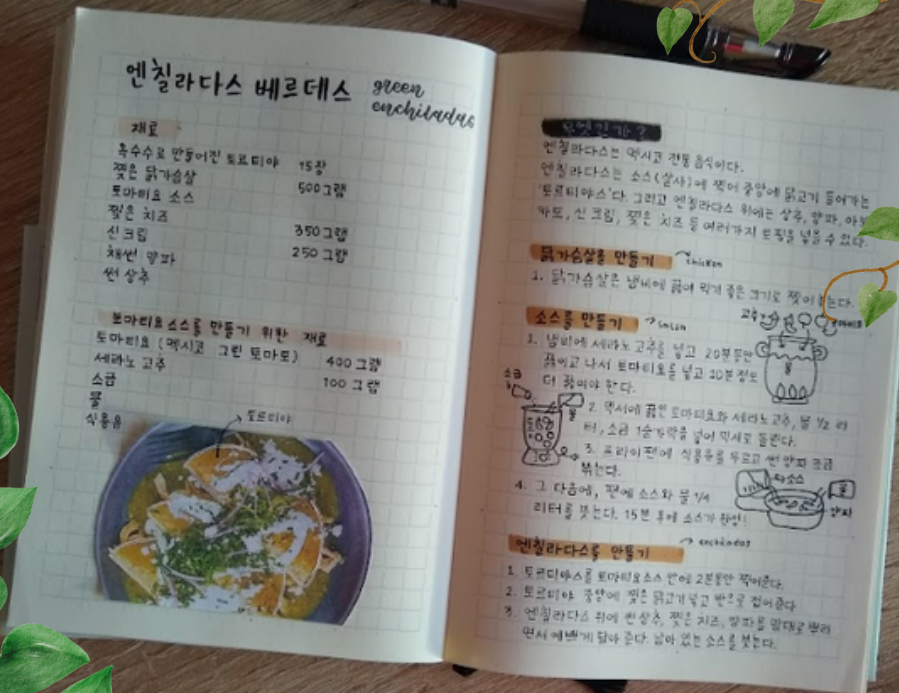 엔칠라다스 베르데스
green
enchiladas
재료
옥수수로 만들어진 토르티야 15장
찢은 닭가슴살 500그램
토마티요 소스
찢은 치즈
신크림 350그램
채썬 양파 250그램
썬 상추
토마티요소스를 만들기 위한 재료
토마티요 (멕시코 그린 토마토) 400그램
세라노 고추 100그램
소금
물
식용유
토르티야
무엇인가?
엔칠라다스는 멕시코 전통 음식이다.
엔칠라다스는 소스(살사)에 찍어 중앙에 닭고기 들어가는
'토르티야스'다. 그리고 엔칠라다스 위에는 상추, 양파, 아보
카도, 신 크림, 찢은 치즈 등 여러가지 토핑을 넣을 수 있다.
닭가슴살을 만들기
chicken
1. 닭가슴살은 냄비에 끓여 먹기 좋은 크기로 찢어 는다.
소스를 만들기
고추
1. 냄비에 세라노고추를 넣고 20분동안
끓이고 나서 토마티요를 넣고 10분정도
더 끓여야 한다.
소금
물
2. 믹서에 끓은 토마티요와 세라노고추, 물 1/2 리
터, 소금 1숟가락을 넣어 믹서로 돌린다.
3. 프라이팬에 식용유를 두르고 썬 양파 조금
볶는다.
4. 그 다음에, 팬에 소스와 물 1/4
리터를 붓는다. 15분 후에 소스가 완성!
소스
물
양파
엔칠라다스를 만들기
enchiladas
1. 토르티야스를 토마티요소스 안에 2분동안 찍어준다.
2. 토르티야 중앙에 찢은 닭고기 넣고 반으로 접어준다
3. 엔칠라다스 위에 썬상추, 찢은 치즈, 양파를 맘대로 뿌려
면서 예쁘게 담아 준다. 남아 있는 소스를 붓는다.